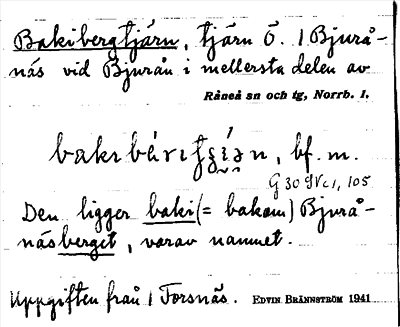 Bakibergtjärn, tjärn ö. i Bjurå-
näs vid Bjurån i mellersta delen av
Råneå sn och tg, Norrb. l.
bakɩbærɩtʂíən, bf. m.
G 30 9V c1, 105
Den ligger baki (= bakom) Bjurå-
näsberget, varav namnet.
Uppgiften från i Forsnäs. EDVIN BRÄNNSTRÖM 1941